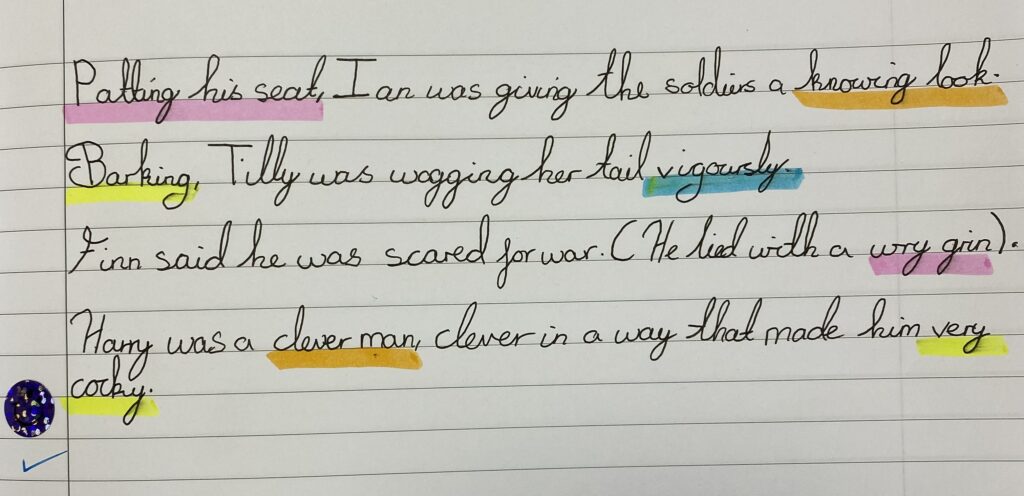 Patting his seat, Ian was giving the soldiers a knowing look.
Barking, Tilly was wagging her tail vigoursly.
Finn said he was scared for war. (He lied with a wry grin).
Harry was a clever man, clever in a way that made him very
cocky.